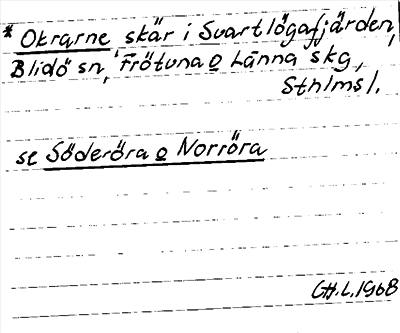 * Okrarne skär i Svartlögafjärden,
Blidö sn, Frötuna o Länna skg,
Sthlms l.
se Söderöra o Norröra
GH.L.1968